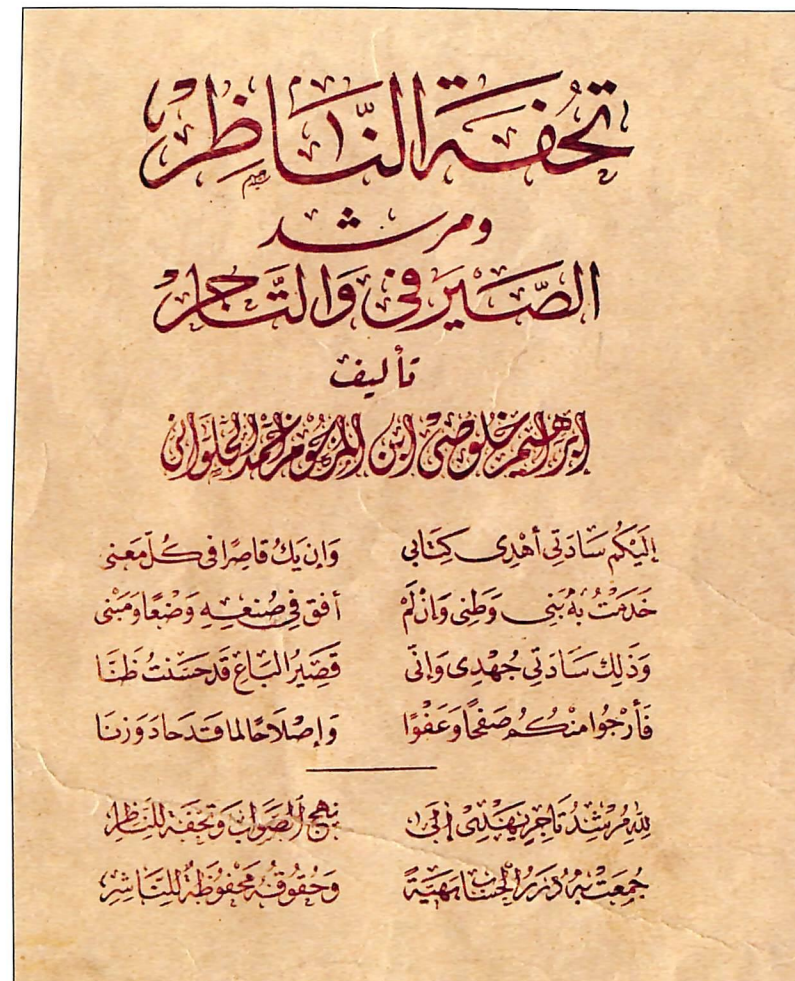 تُحْفَةُ النَّاظِرِ
ومرشد
الصَّيْرَفِى وَالتَّاجِرِ
تأليف
ابراهيم خلوصى ابن المرحوم احمد الحلوانى
إلَيْكُم سَادَتِى أهْدِى كِتَابى وَإن يَكُ قاصِرًا فى كُلّ مَعنى
خَدَمْتُ بهُ بَنِى وَطَنِى وَإنْ لَمْ أفق فِى صُنعِهِ وَضْعًا وَمَبْنى
وَذَلِكَ سَادَتِى جُهْدِى وَإنّى قَصِيْرُ البَاعِ قَد حَسَنتُ ظَنَّا
فَأرْجُوا مِنْكُم صَفحًا وَعَفْوًا وَإصْلَاحًا لما قَد حَادَ وَزنَا
لِلَّهِ مُرْشِدُ تَاجِرٍ يَهْدِى إلَى نهج الصَّوابِ وَتحْفَة للنَّاظر
جُمِعَتْ بهُ دُرَرُ الحِسَابِ بَهِيَّةً وَحُقُوقهُ مَحْفُوظَةٌ لِلنَّاشِرِ